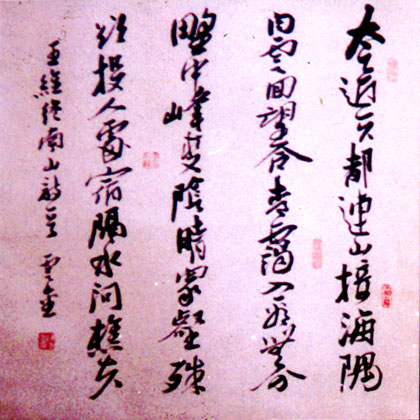 太乙近天都連山接海隅
白雲回望合青靄入看無分
野中峰變陰晴眾壑殊
欲投人處宿隔水問樵夫
王維終南山詩